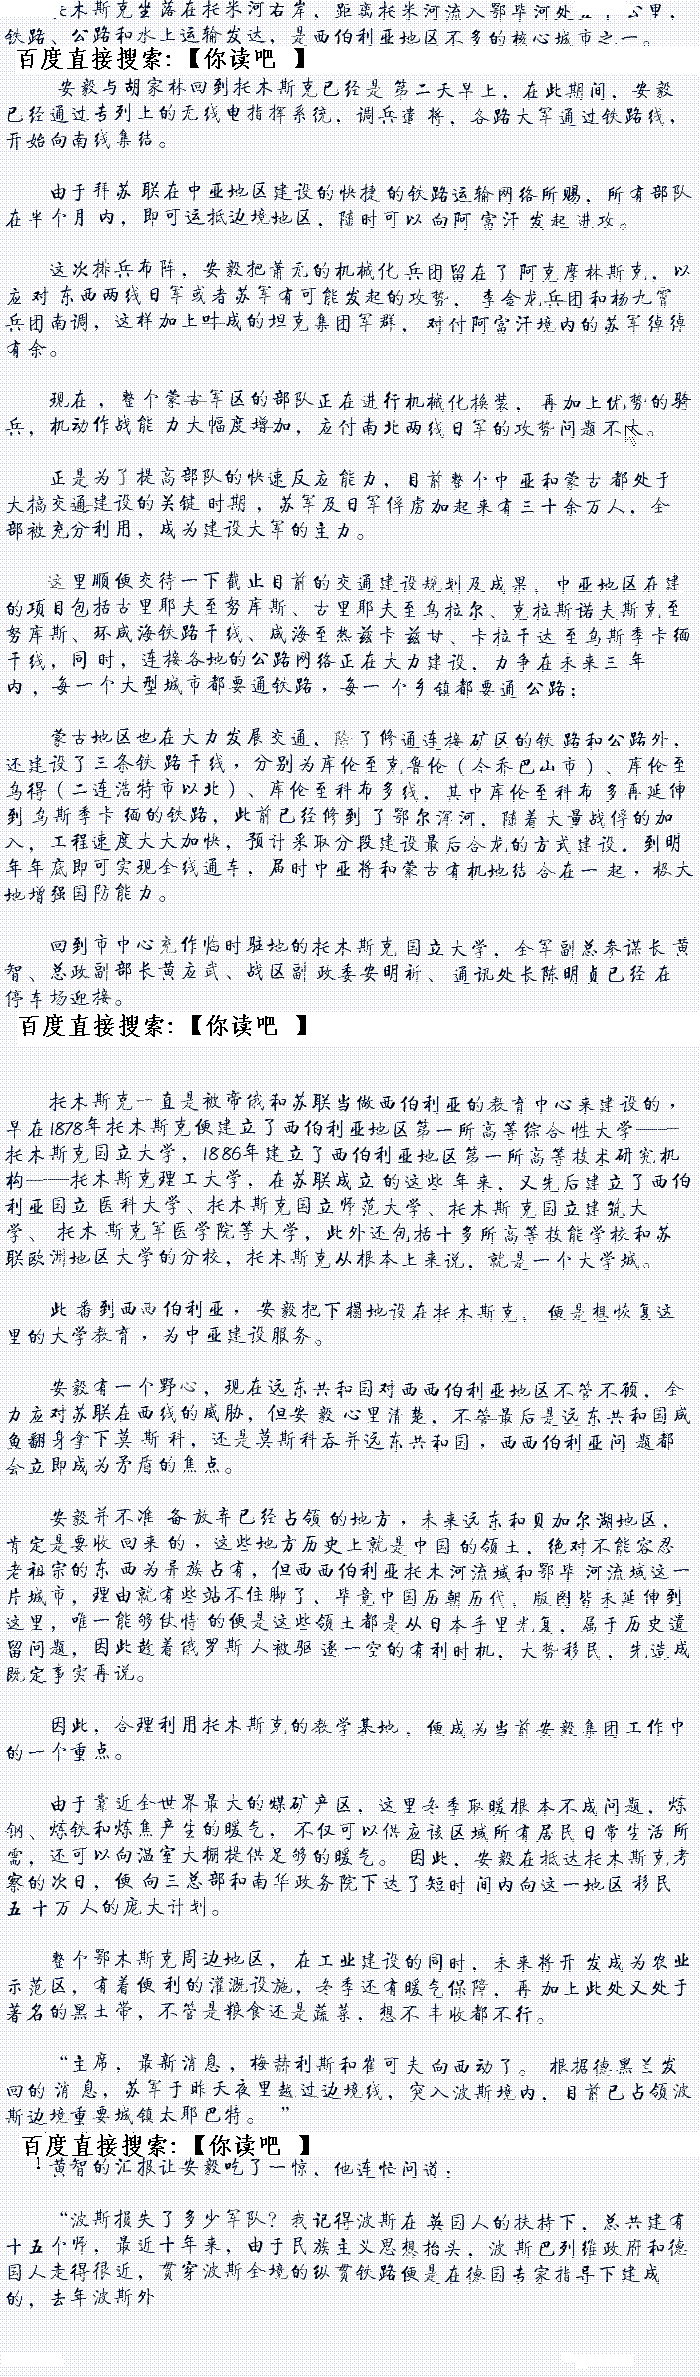 托木斯克坐落在托米河右岸，距离托米河流入鄂毕河处五　公里，
铁路、公路和水上运输发达，是西伯利亚地区不多的核心城市之一。
百度直接搜索:【你读吧 】
安毅与胡家林回到托木斯克已经是 第二天早上，在此期间，安毅
已经通过专列上的无线电指挥系统，调兵遣 将，各路大军通过铁路线，
开始向南线集结。
由于拜苏 联在中亚地区建设的快捷 的铁路运输网络所赐，所有部队
在半个月 内，即可运抵边境地区，随时可以 向阿 富汗 发起 进攻。
这次排兵布阵，安毅把萧元的机械化 兵团留在了 阿克摩林斯克，以
应 对 东西两线日军或者苏军有可能发起的攻势， 李金龙兵团和杨九霄
兵团南调，这样加上叶成的坦克集团军群， 对付阿富汗境内的苏军绰绰
有余。
现在 ，整个蒙古军区的部队正在进行机械化换装， 再加上优势的骑
兵，机动作战能 力大幅度增加，应付南北两线日军的攻势问题不大。
正是为了提高部队的快速反应 能力，目前整个中 亚和蒙古 都处于
大搞交通建设的关键 时期 ，苏军及日军俘虏加起来有三十余万人，全
部被充分利用，成为建设大军的主力。
这里顺便交待一下截止目前的交通建设规划及成果，中亚地区在建
的项目包括古里耶夫至努库斯、古里耶夫至乌拉尔、克拉斯诺夫斯克至
努库斯、环咸海铁路干线、咸海至热兹卡 兹甘、卡拉干达 至乌斯季卡缅
干线，同 时，连接各地的公路网络正在大力建设，力争在未来三 年
内 ，每一个大型城市都要通铁路，每一 个乡镇都要通 公路；
蒙古地区也在大力发展交通，除了修通连接矿区的铁 路和公路外，
还建设了三条铁 路干线，分别为库伦至克鲁伦（今乔巴山市）、库伦至
乌得（二连浩特市以北）、库伦至科布多线，其中库伦至科布 多再延伸
到 乌斯季卡 缅的铁路，此前已经修到 了鄂尔浑河，随着大量战俘的加
入，工程速度大大加快，预计采取分段建设最后合龙的方式建设，到明
年年底即可实现全线通车，届时中亚将和蒙古有机地结 合在一 起，极大
地增强国防能力。
回到市中心充作临时驻地的托木斯克 国立大学，全军副总参谋长 黄
智、总政副部长黄应武、战区副 政委安明祈、 通讯处长陈明贞已经 在
停车场迎接。
百度直接搜索:【你读吧 】
托木斯克一直是被帝俄和苏联当做西伯利亚的教育中心来建设的，
早在1878年托木斯克便建立了西伯利亚地区第一所高等综合 性大学——
托木斯克国立大学，1886年建立了西伯利亚地区第一所高等技术研究机
构——托木斯克理工大学，在苏联成立的这些 年来，又先后建立了西伯
利亚国立 医科大学、托木斯克国立师范大学、托木斯 克国立建筑大
学、 托木 斯克军医学院等大学，此外还包括十多所高等技能学校和苏
联欧洲地区大学的分校，托木斯克从根本上来说，就是一个大学城。
此 番到西西伯利亚，安毅把下榻地设在托木斯克，便是想恢复这
里的大学教育，为中亚建设服务。
安毅有一个野心，现在远东共和国对西西伯利亚地区不管不顾，全
力应对苏联在西线的威胁，但安 毅心里清楚，不管最后是远东共和国咸
鱼翻身拿下莫 斯 科，还是莫斯科吞并远东共和国，西西伯利亚问 题都
会立即成为矛盾的焦点。
安毅并不准 备放弃已经占领 的地方，未来远东和贝加尔湖地区，
肯定是要收 回来 的，这些地方历史上就是中国 的领土，绝对不能容忍
老祖宗的东 西为异族占有，但西西伯利亚托木河流域和鄂毕 河流域这一
片城市，理由就有些站不住脚了，毕竟中国历朝历代，版图皆未延伸到
这里，唯一能够仗恃 的便是这些领土都是从日本手里光复，属于历史遗
留问题，因此趁着俄罗斯 人被驱 逐一空的有利时机，大势移民，先造成
既定事实再说。
因此，合理利用托木斯克的教学基地，便成为当前安毅集团工作中
的一个重点。
由于靠近全世界最大的煤矿产区，这里冬季取暖根本不成问题，炼
钢、炼铁和炼焦产生的暖气， 不仅可以供应该区域所有居民日常生活所
需，还可以向温室大棚提供足够的暖气。 因此，安毅在抵达托木斯克考
察的次日，便 向三总部和南华政务院下达了短时 间内向这一地区 移民
五 十万 人的庞大计划。
整个鄂木斯克周边地区， 在工业建设的同时，未来将开 发成为农业
示范区，有着便 利的灌溉设施，冬季还有暖气保障，再 加上此处又处于
著名的黑土带，不管是粮食还是蔬菜，想不 丰收都不行。
“主席，最新消息，梅赫利斯和崔可夫 向西动了。 根据德黑兰发
回的 消 息，苏军于昨天夜里越过边境线，突入波斯境内，目前已占领波
斯边境重要城镇太耶巴特。”
百度直接搜索:【你读吧 】
！黄智的汇报让安毅吃了一惊，他连忙问道：
“波斯损失了多少军队？我记得波斯在 英国人的扶持下，总共建有
十五个师，最近十年来，由于民族主义思想抬头，波 斯巴列维政府和德
国人走得很近，贯穿波斯全境的纵贯铁路便是在德国专家指导下建成
的，去年波斯外